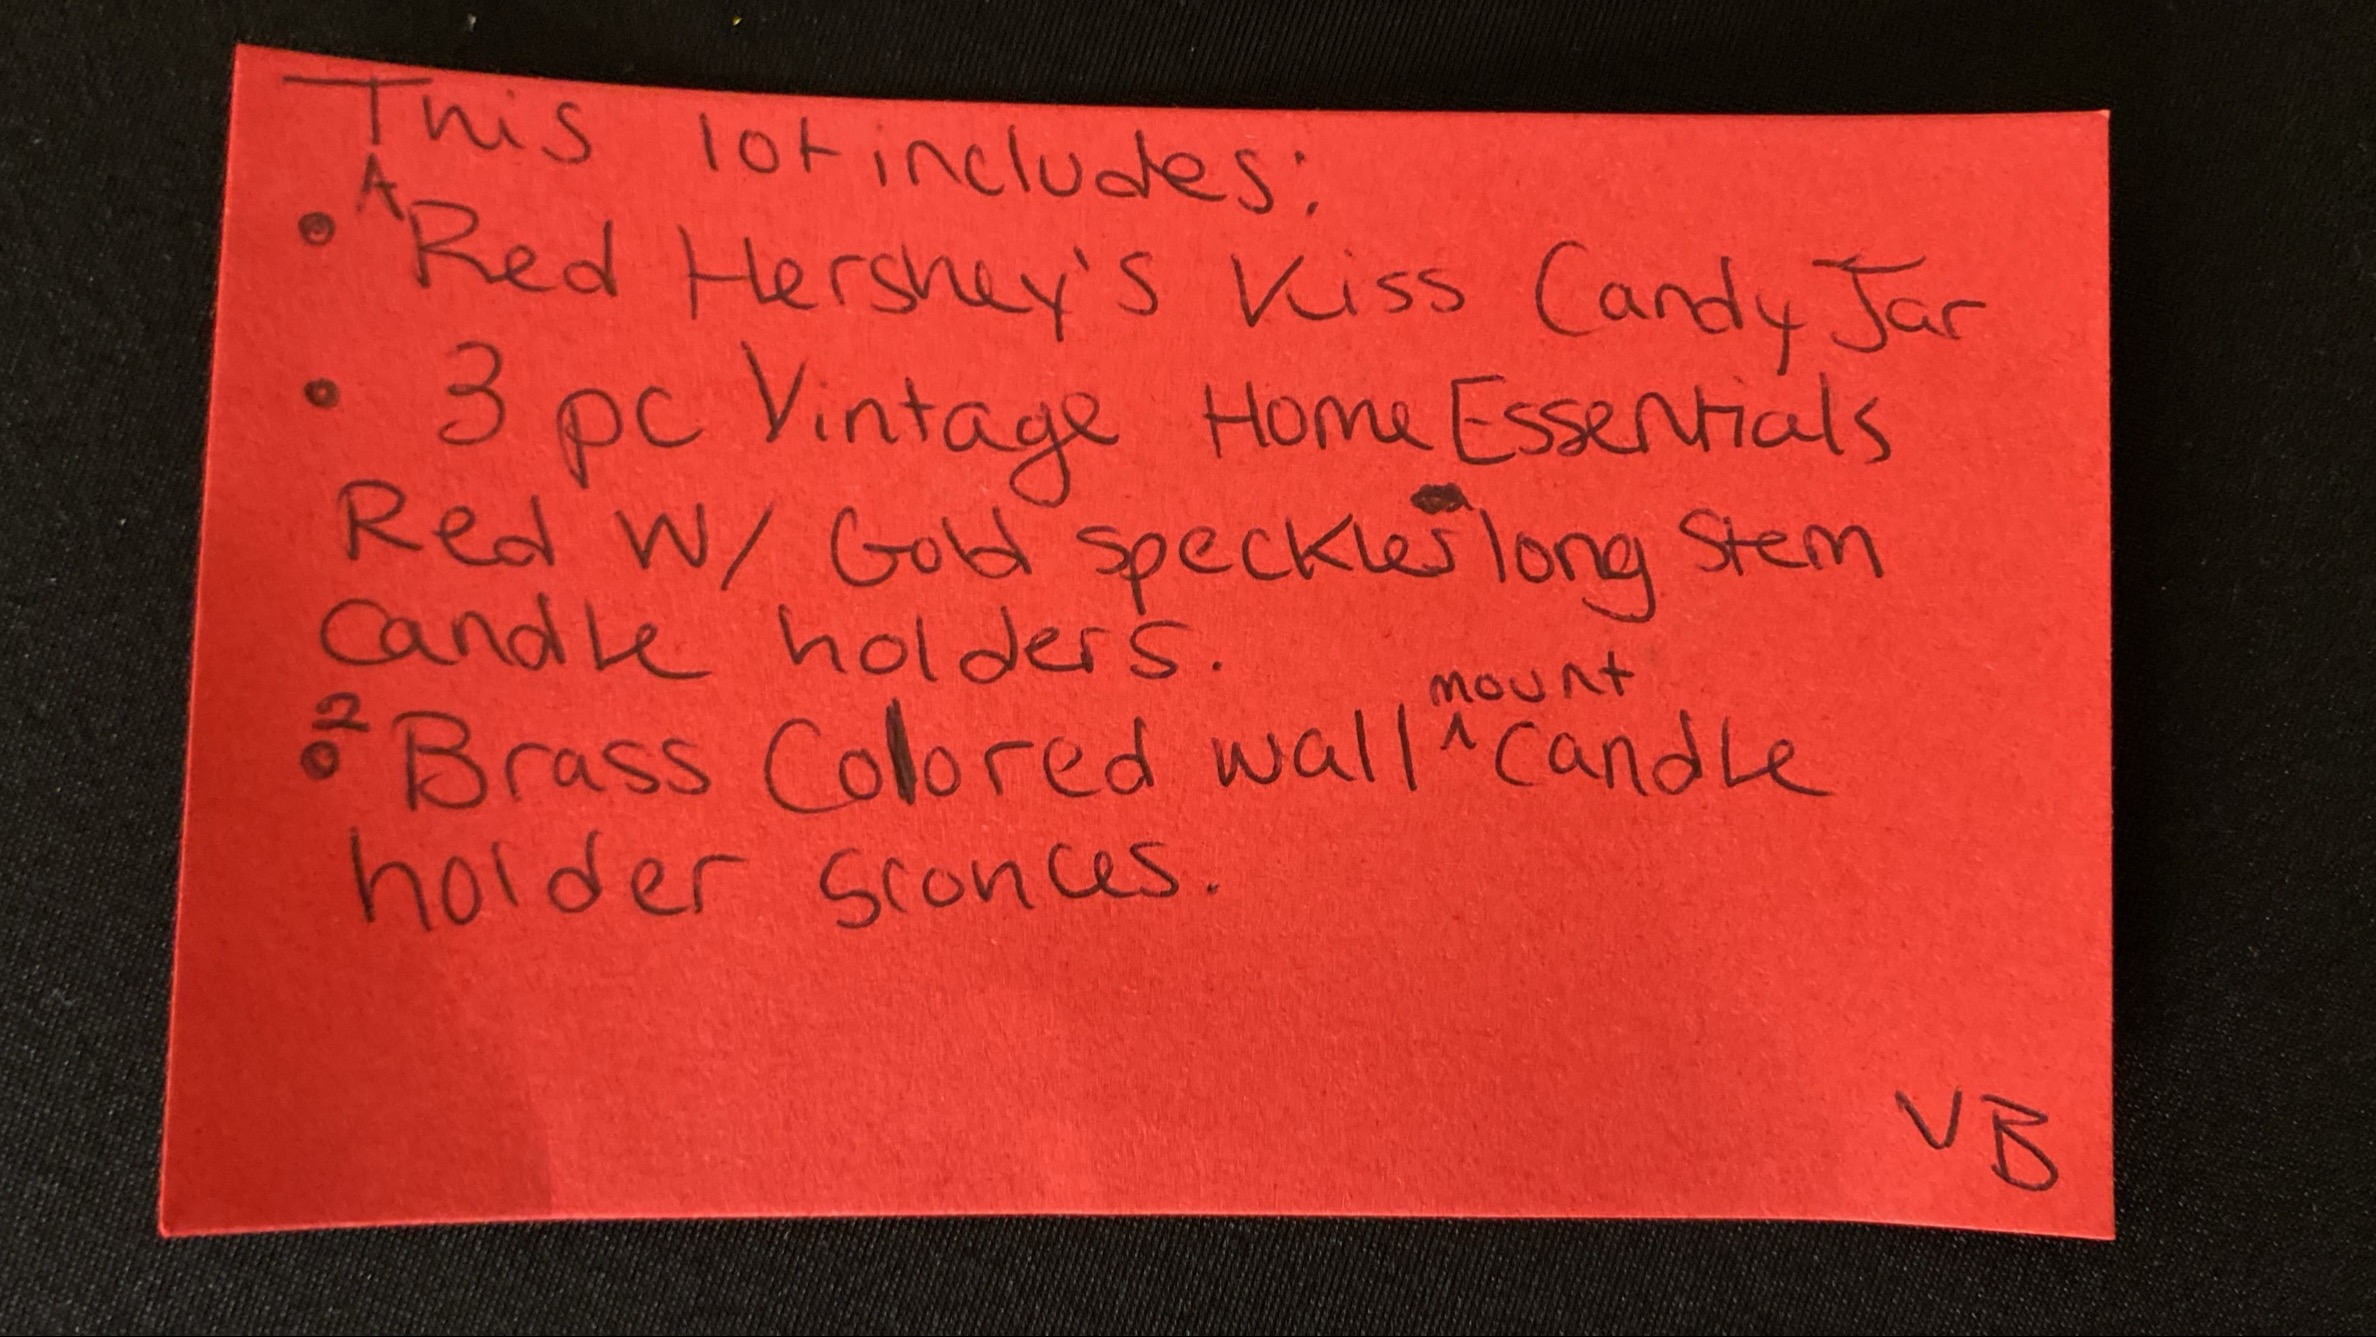 This lot includes:
• A Red Hershey's Kiss Candy Jar
• 3 pc Vintage Home Essentials
Red W/ Gold speckles long Stem
Candle holders.
• 2 Brass Colored wall ^mount Candle
holder sconces.
VB